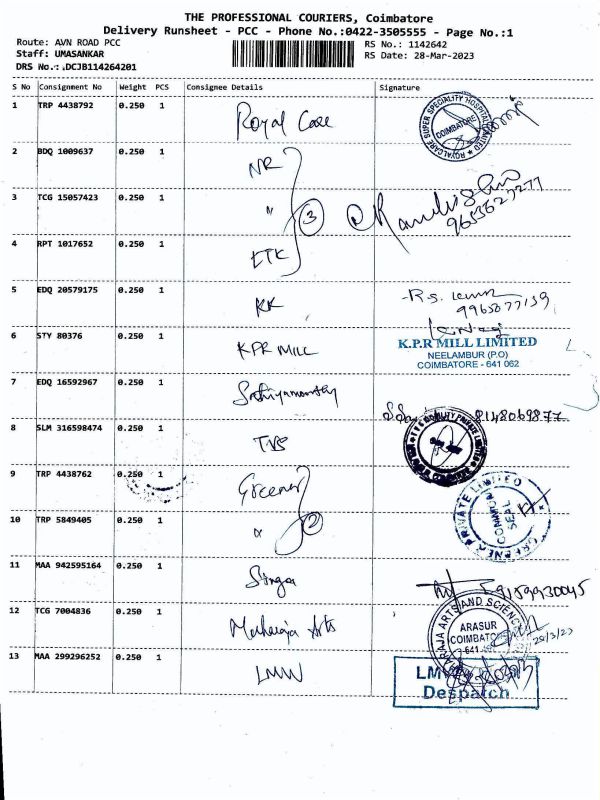 THE PROFESSIONAL COURIERS, Coimbatore
Delivery Runsheet - PCC - Phone No.:0422-3505555 - Page No.:1
Route: AVN ROAD PCC
RS No.: 1142642
Staff: UMASANKAR
RS Date: 28-Mar-2023
DRS No.:.DCJB114264201
S No Consignment No Weight PCS Consignee Details Signature
1 TRP 4438792 0.250 1 Royal Care
ROYALCARE SUPER SPECIALITY HOSPITAL LIMITED
COIMBATORE
2 BDQ 1009637 0.250 1 NR
3 TCG 15057423 0.250 1 " 3
9655627277
4 RPT 1017652 0.250 1
5 EDQ 20579175 0.250 1 KK
R.S.
6 STY 80376 1 KPR MILL
K.P.R MILL LIMITED
NEELAMBUR (P.O)
COIMBATORE - 641 062
7 EDQ 16592967 0.250 1
8148069877
8 SLM 316598474 0.250 1 TVS
PRIVATE LIMITED
9 TRP 4438762 0.250 1 Greener
GREENER PRIVATE LIMITED
COMMON SEAL
10 TRP 5849405 0.250 1 " 2
11 MAA 942595164 0.250 1
9159930045
12 TCG 7004836 0.250 1 Maharaja Arts
ARAJA ARTS AND SCIENC
ARASUR
COIMBATO
641
13 MAA 299296252 0.250 1 LMW
LM
Despatch